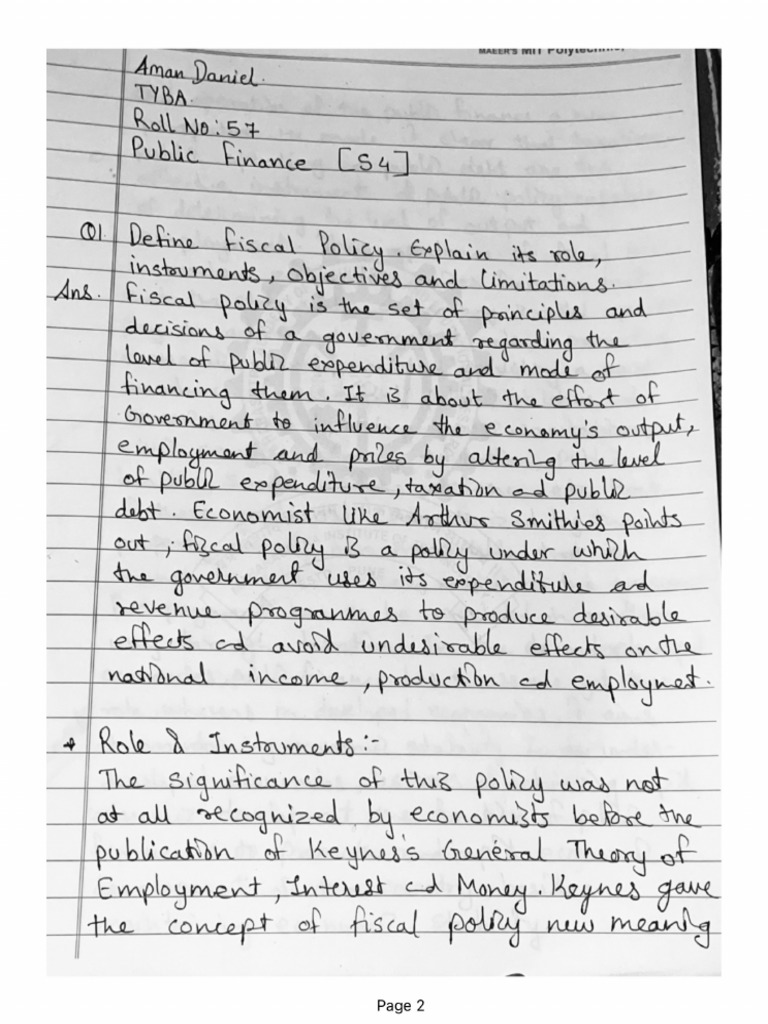 MAEER'S MIT Polytechnic,
Aman Daniel.
TYBA.
Roll No: 57
Public Finance [S4]
Q1. Define Fiscal Policy. Explain its role,
instruments, objectives and limitations.
Ans. Fiscal policy is the set of principles and
decisions of a government regarding the
level of public expenditure and mode of
financing them. It is about the effort of
Government to influence the economy's output,
employment and prices by altering the level
of public expenditure, taxation ad public
debt. Economist like Arthur Smithies points
out, fiscal policy is a policy under which
the government uses its expenditure ad
revenue programmes to produce desirable
effects ad avoid undesirable effects on the
national income, production ad employmet.
→ Role & Instruments:-
The significance of this policy was not
at all recognized by economists before the
publication of Keynes's General Theory of
Employment, Interest ad Money. Keynes gave
the concept of fiscal policy new meaning
Page 2